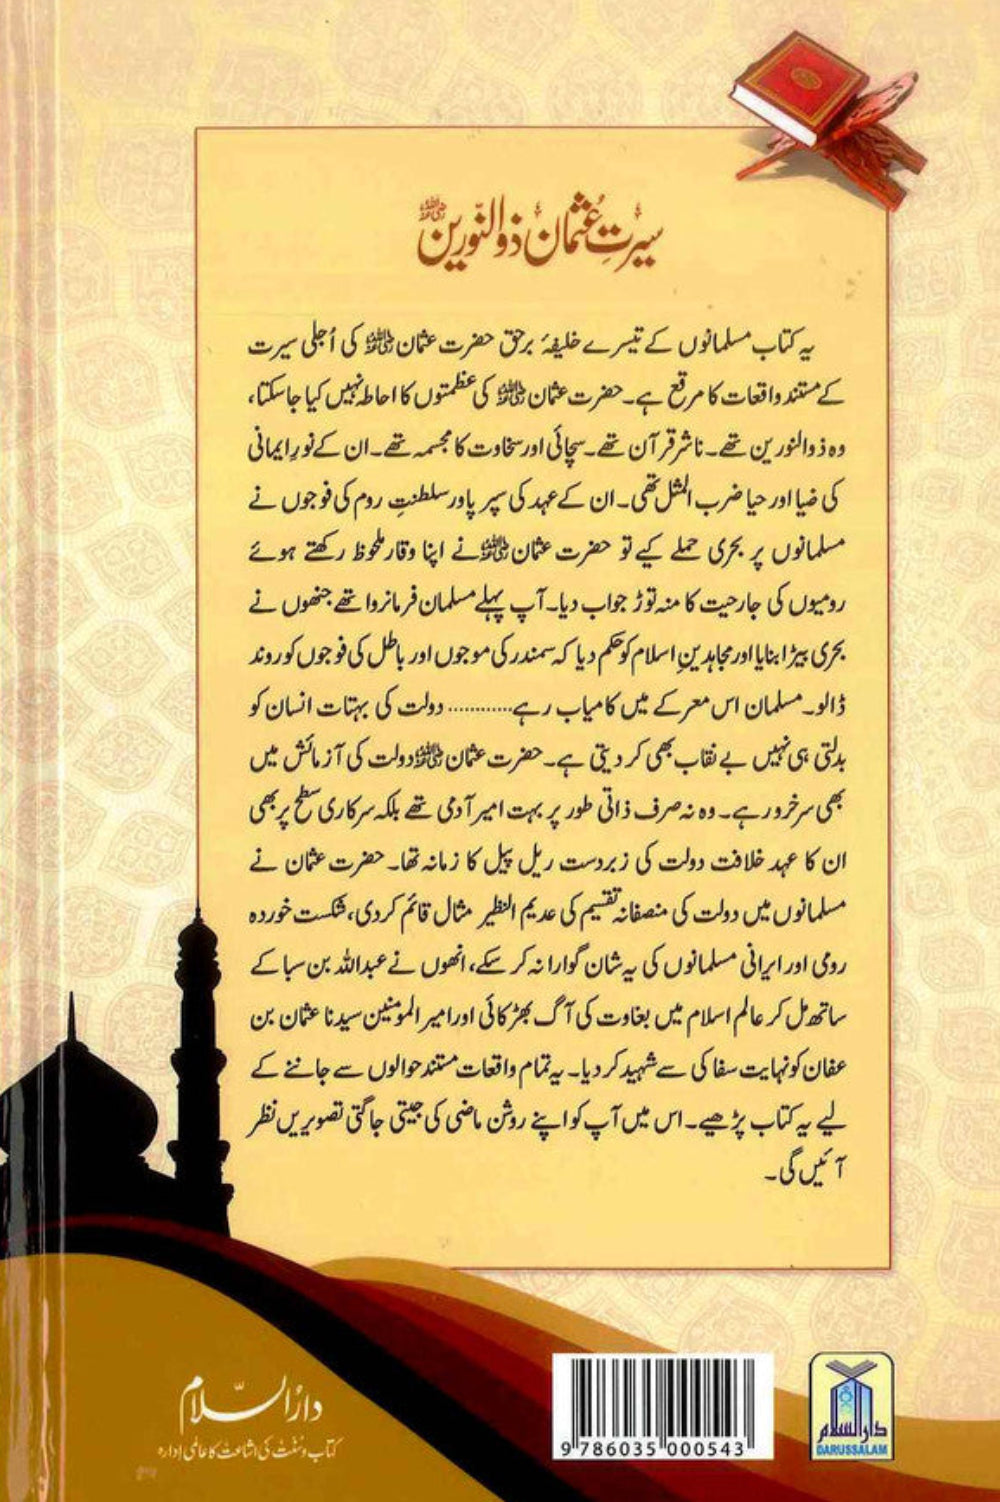 سیرتِ عُثمان ذوالنّورین ؓ
یہ کتاب مسلمانوں کے تیسرے خلیفۂ برحق حضرت عثمان ؓ کی اُجلی سیرت
کے مستند واقعات کا مرقع ہے۔ حضرت عثمان ؓ کی عظمتوں کا احاطہ نہیں کیا جاسکتا،
وہ ذوالنورین تھے۔ ناشر قرآن تھے۔ سچائی اور سخاوت کا مجسمہ تھے۔ ان کے نورِ ایمانی
کی ضیا اور حیا ضرب المثل تھی۔ ان کے عہد کی سپر پاور سلطنتِ روم کی فوجوں نے
مسلمانوں پر بحری حملے کیے تو حضرت عثمان ؓ نے اپنا وقار ملحوظ رکھتے ہوئے
رومیوں کی جارحیت کا منہ توڑ جواب دیا۔ آپ پہلے مسلمان فرمانروا تھے جنھوں نے
بحری بیڑا بنایا اور مجاہدینِ اسلام کو حکم دیا کہ سمندر کی موجوں اور باطل کی فوجوں کو روند
ڈالو۔ مسلمان اس معرکے میں کامیاب رہے............ دولت کی بہتات انسان کو
بدلتی ہی نہیں بے نقاب بھی کر دیتی ہے۔ حضرت عثمان ؓ دولت کی آزمائش میں
بھی سرخرو رہے۔ وہ نہ صرف ذاتی طور پر بہت امیر آدمی تھے بلکہ سرکاری سطح پر بھی
ان کا عہد خلافت دولت کی زبردست ریل پیل کا زمانہ تھا۔ حضرت عثمان نے
مسلمانوں میں دولت کی منصفانہ تقسیم کی عدیم النظیر مثال قائم کر دی، شکست خوردہ
رومی اور ایرانی مسلمانوں کی یہ شان گوارا نہ کر سکے، انھوں نے عبداللہ بن سبا کے
ساتھ مل کر عالم اسلام میں بغاوت کی آگ بھڑکائی اور امیر المومنین سیدنا عثمان بن
عفان کو نہایت سفاکی سے شہید کر دیا۔ یہ تمام واقعات مستند حوالوں سے جاننے کے
لیے یہ کتاب پڑھیے۔ اس میں آپ کو اپنے روشن ماضی کی جیتی جاگتی تصویریں نظر
آئیں گی۔
دارُالسّلام
کتاب و سُنّت کی اشاعت کا عالمی ادارہ
9 786035 000543
دارالسلام
DARUSSALAM